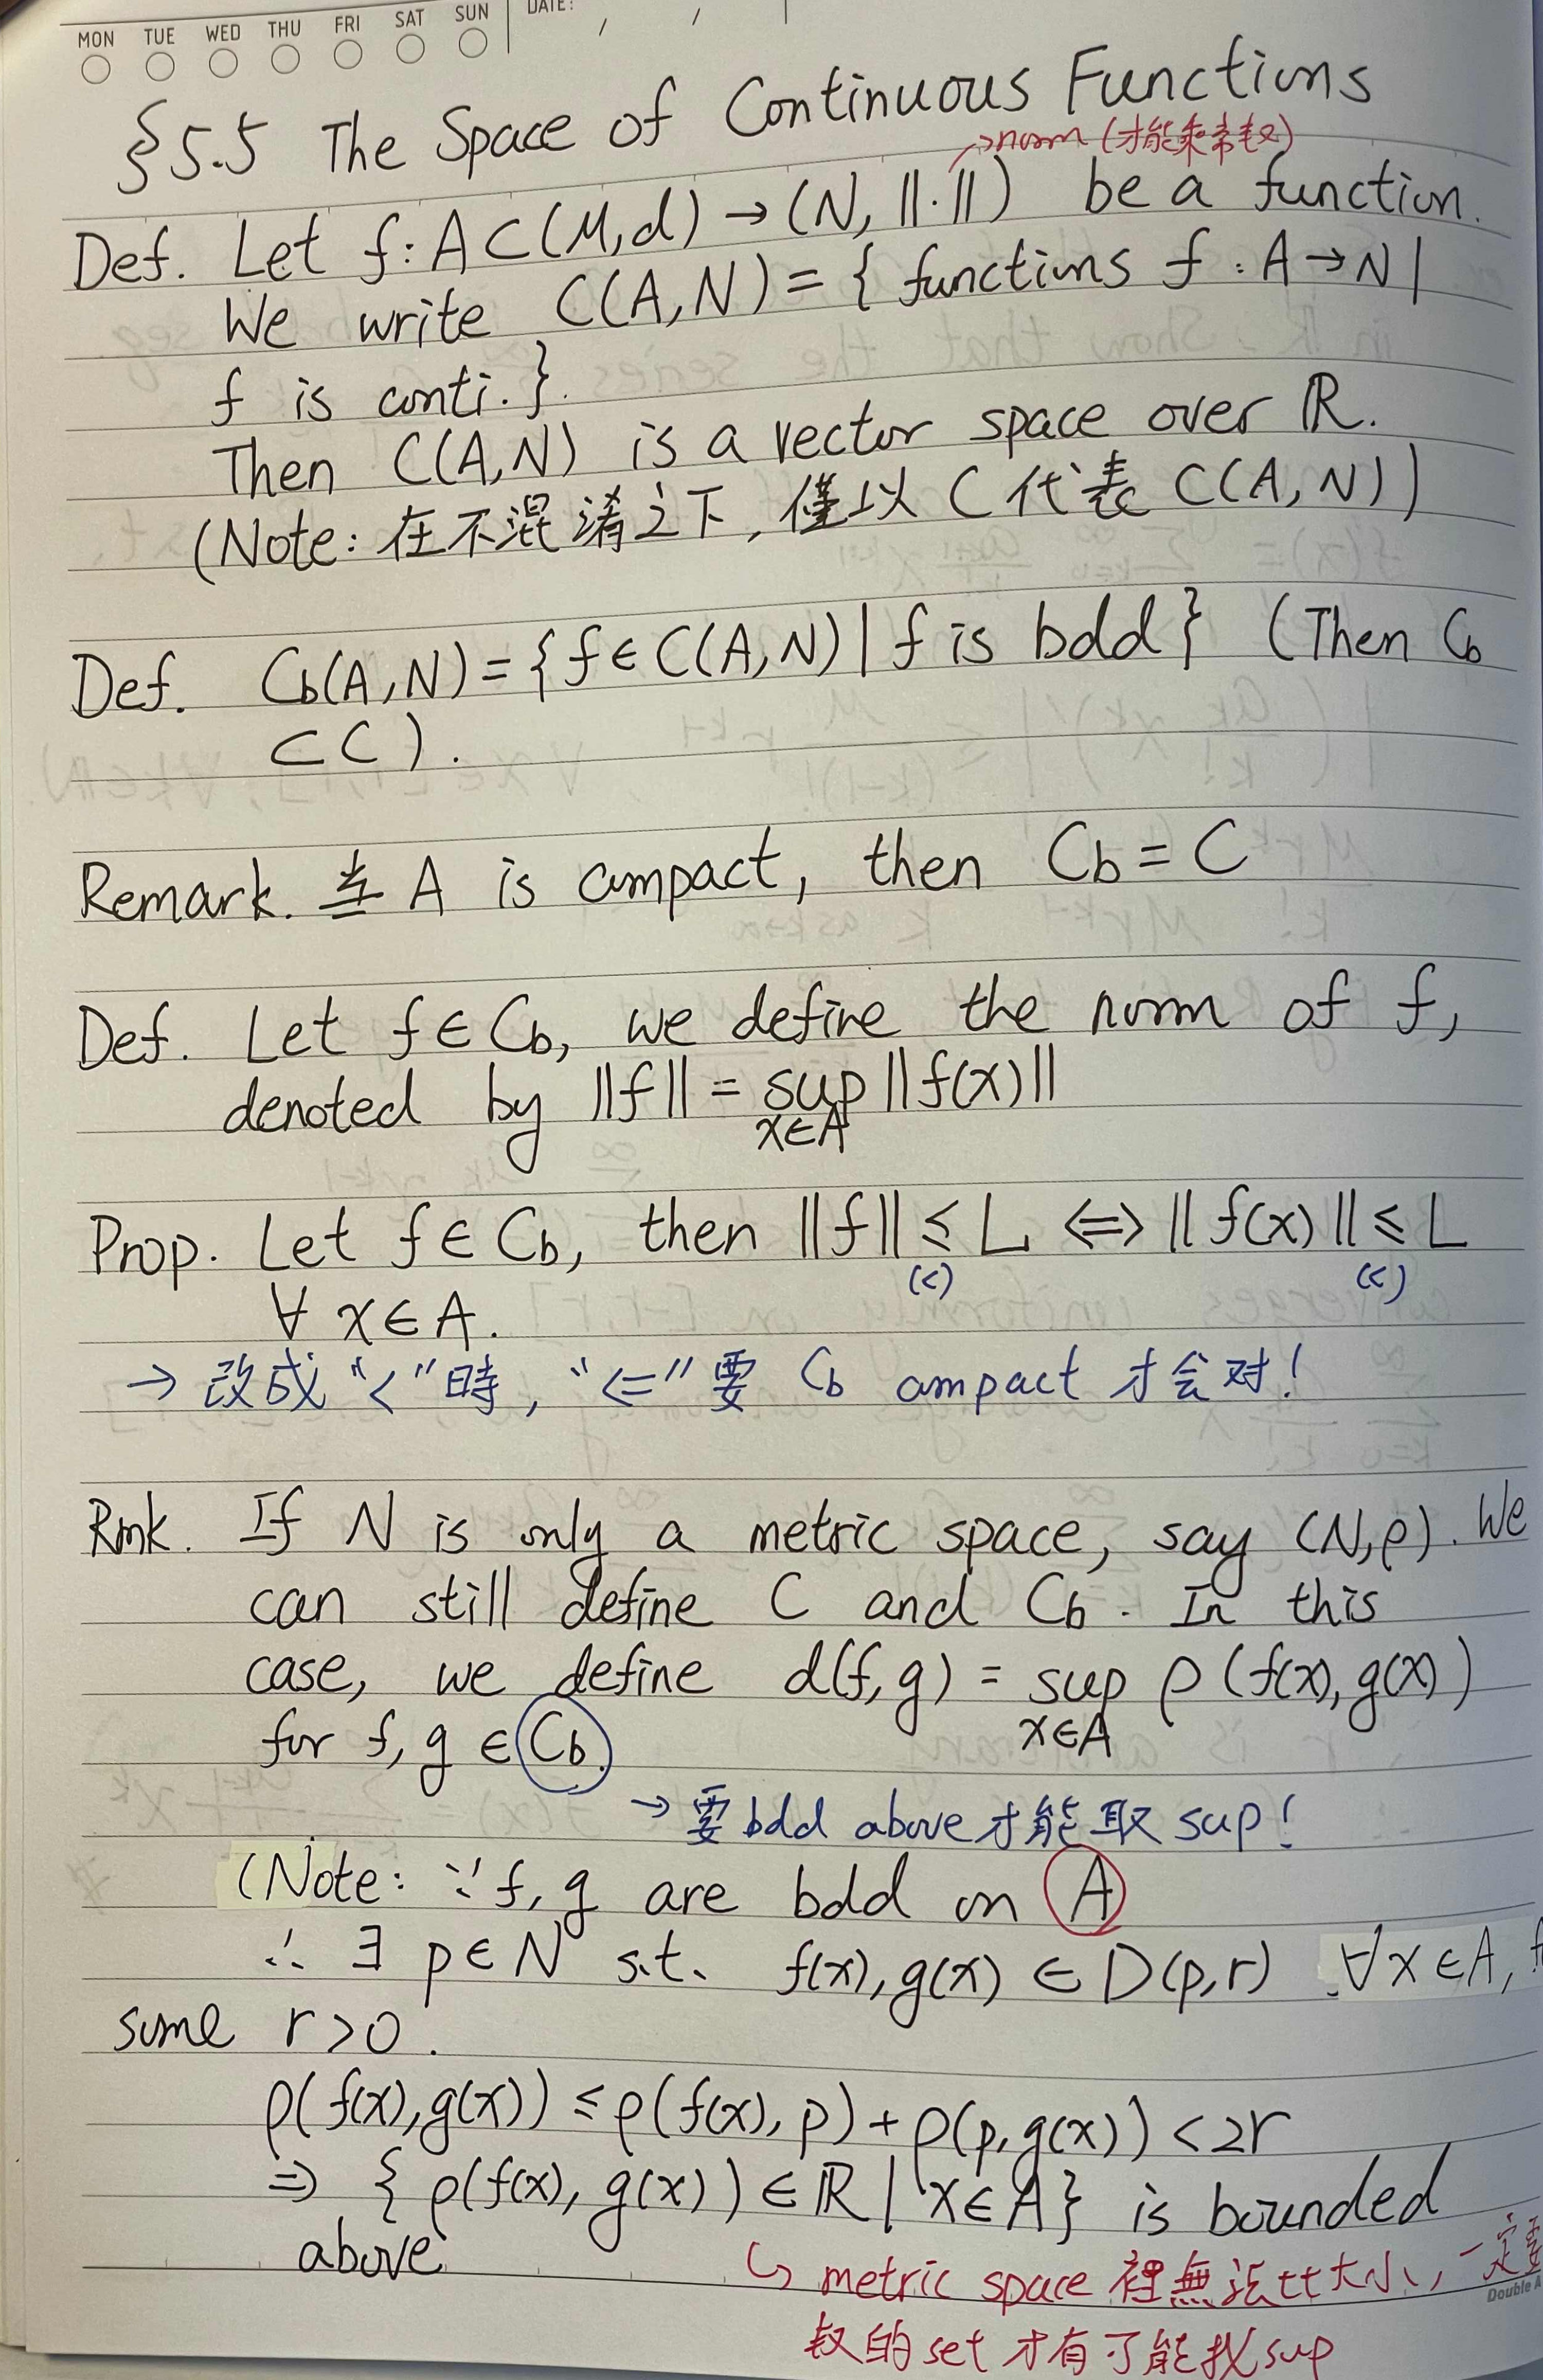 MON TUE WED THU FRI SAT SUN DATE: / /
§5.5 The Space of Continuous Functions
→norm (才能乘常数)
Def. Let f: A⊂(M,d) → (N, ||·||) be a function.
We write C(A,N) = { functions f : A→N |
f is conti. }.
Then C(A,N) is a vector space over ℝ.
(Note: 在不混淆之下, 僅以 C 代表 C(A,N))
Def. Cb(A,N) = { f ∈ C(A,N) | f is bdd } (Then Cb
⊂ C).
Remark. 当 A is compact, then Cb = C
Def. Let f ∈ Cb, we define the norm of f,
denoted by ||f|| = sup ||f(x)||
x∈A
Prop. Let f ∈ Cb, then ||f|| ≤ L ⟺ || f(x) || ≤ L
(<) (<)
∀ x ∈ A.
→ 改成 "<" 時, "⇐" 要 Cb compact 才会对!
Rmk. If N is only a metric space, say (N,ρ). We
can still define C and Cb. In this
case, we define d(f,g) = sup ρ(f(x),g(x))
x∈A
for f, g ∈ Cb.
→ 要 bdd above 才能取 sup!
(Note: ∵ f, g are bdd on A
∴ ∃ p ∈ N s.t. f(x), g(x) ∈ D(p,r) ∀x ∈ A,
some r > 0.
ρ(f(x),g(x)) ≤ ρ(f(x), p) + ρ(p,g(x)) < 2r
⇒ { ρ(f(x), g(x)) ∈ ℝ | x ∈ A } is bounded
above
↳ metric space 裡無法比大小, 一定要
Double A
数的 set 才有可能找 sup